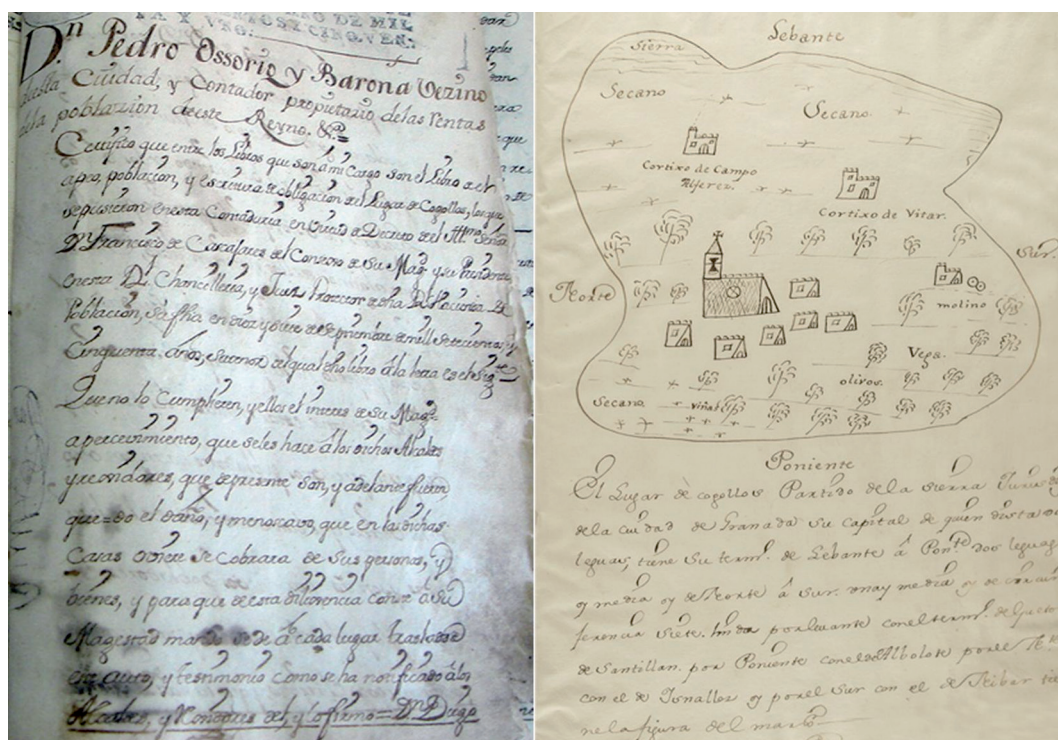 A Y VEINTE Y CINQUEN:
Dn. Pedro Ossorio y Barona Vezino
desta Ciudad, y Contador propietario delas Rentas
dela poblazion deeste Reyno. &ª
Certifico que entre los Libros que son ámi Cargo son el Libro de el
apeo, poblazion, y escritura de obligazion del Lugar de Cogollos, los que
sepusieron enesta Contaduria, en virtud de Decreto del Illmo. Señor
Dn. Francisco de Cascajares del Consexo de Su Mag. y su Presidente
enesta Rl. Chancilleria, y Juez
Poblazion, Su fha en diez y de septiembre de mill setecientos y
Cinquenta años, del qual dho libro á la letra es el Sigte
Que no lo Cumplieren, y ellos el interes de su Magd.
apercevimiento, que seles hace álos dichos Alcaldes
y rexidores, que depresente son, y adelante fueren
que=do el daño, y menoscavo, que en las dichas
Casas Se Cobrara de Sus personas, y
bienes, y para que de esta dilixencia conste á Su
Magestad mando se dé á cada lugar traslado de
este auto, y testimonio como se ha notificado álos
Alcaldes, y Rexidores del, y lo firmo = Dn. Diego
Lebante
Sierra
Secano
Secano.
Cortixo de Campo
Alferez.
Cortixo de Vitar.
Sur.
Norte
molino
Vega.
olivos.
Secano
viñas
Poniente
El Lugar de cogollos Partido de la Sierra
de la ciudad de Granada Su Capital de quien dista dos
leguas, tiene Su termo. de Lebante â Ponte. dos leguas
y media y de Norte â Sur. una y media y de circun
ferencia Siete. linda por levante con el termo. de Gueto
de Santillan. por Poniente con el de Albolote por el N.
con el de Isnalloz y por el Sur con el de Nibar
ne la figura del